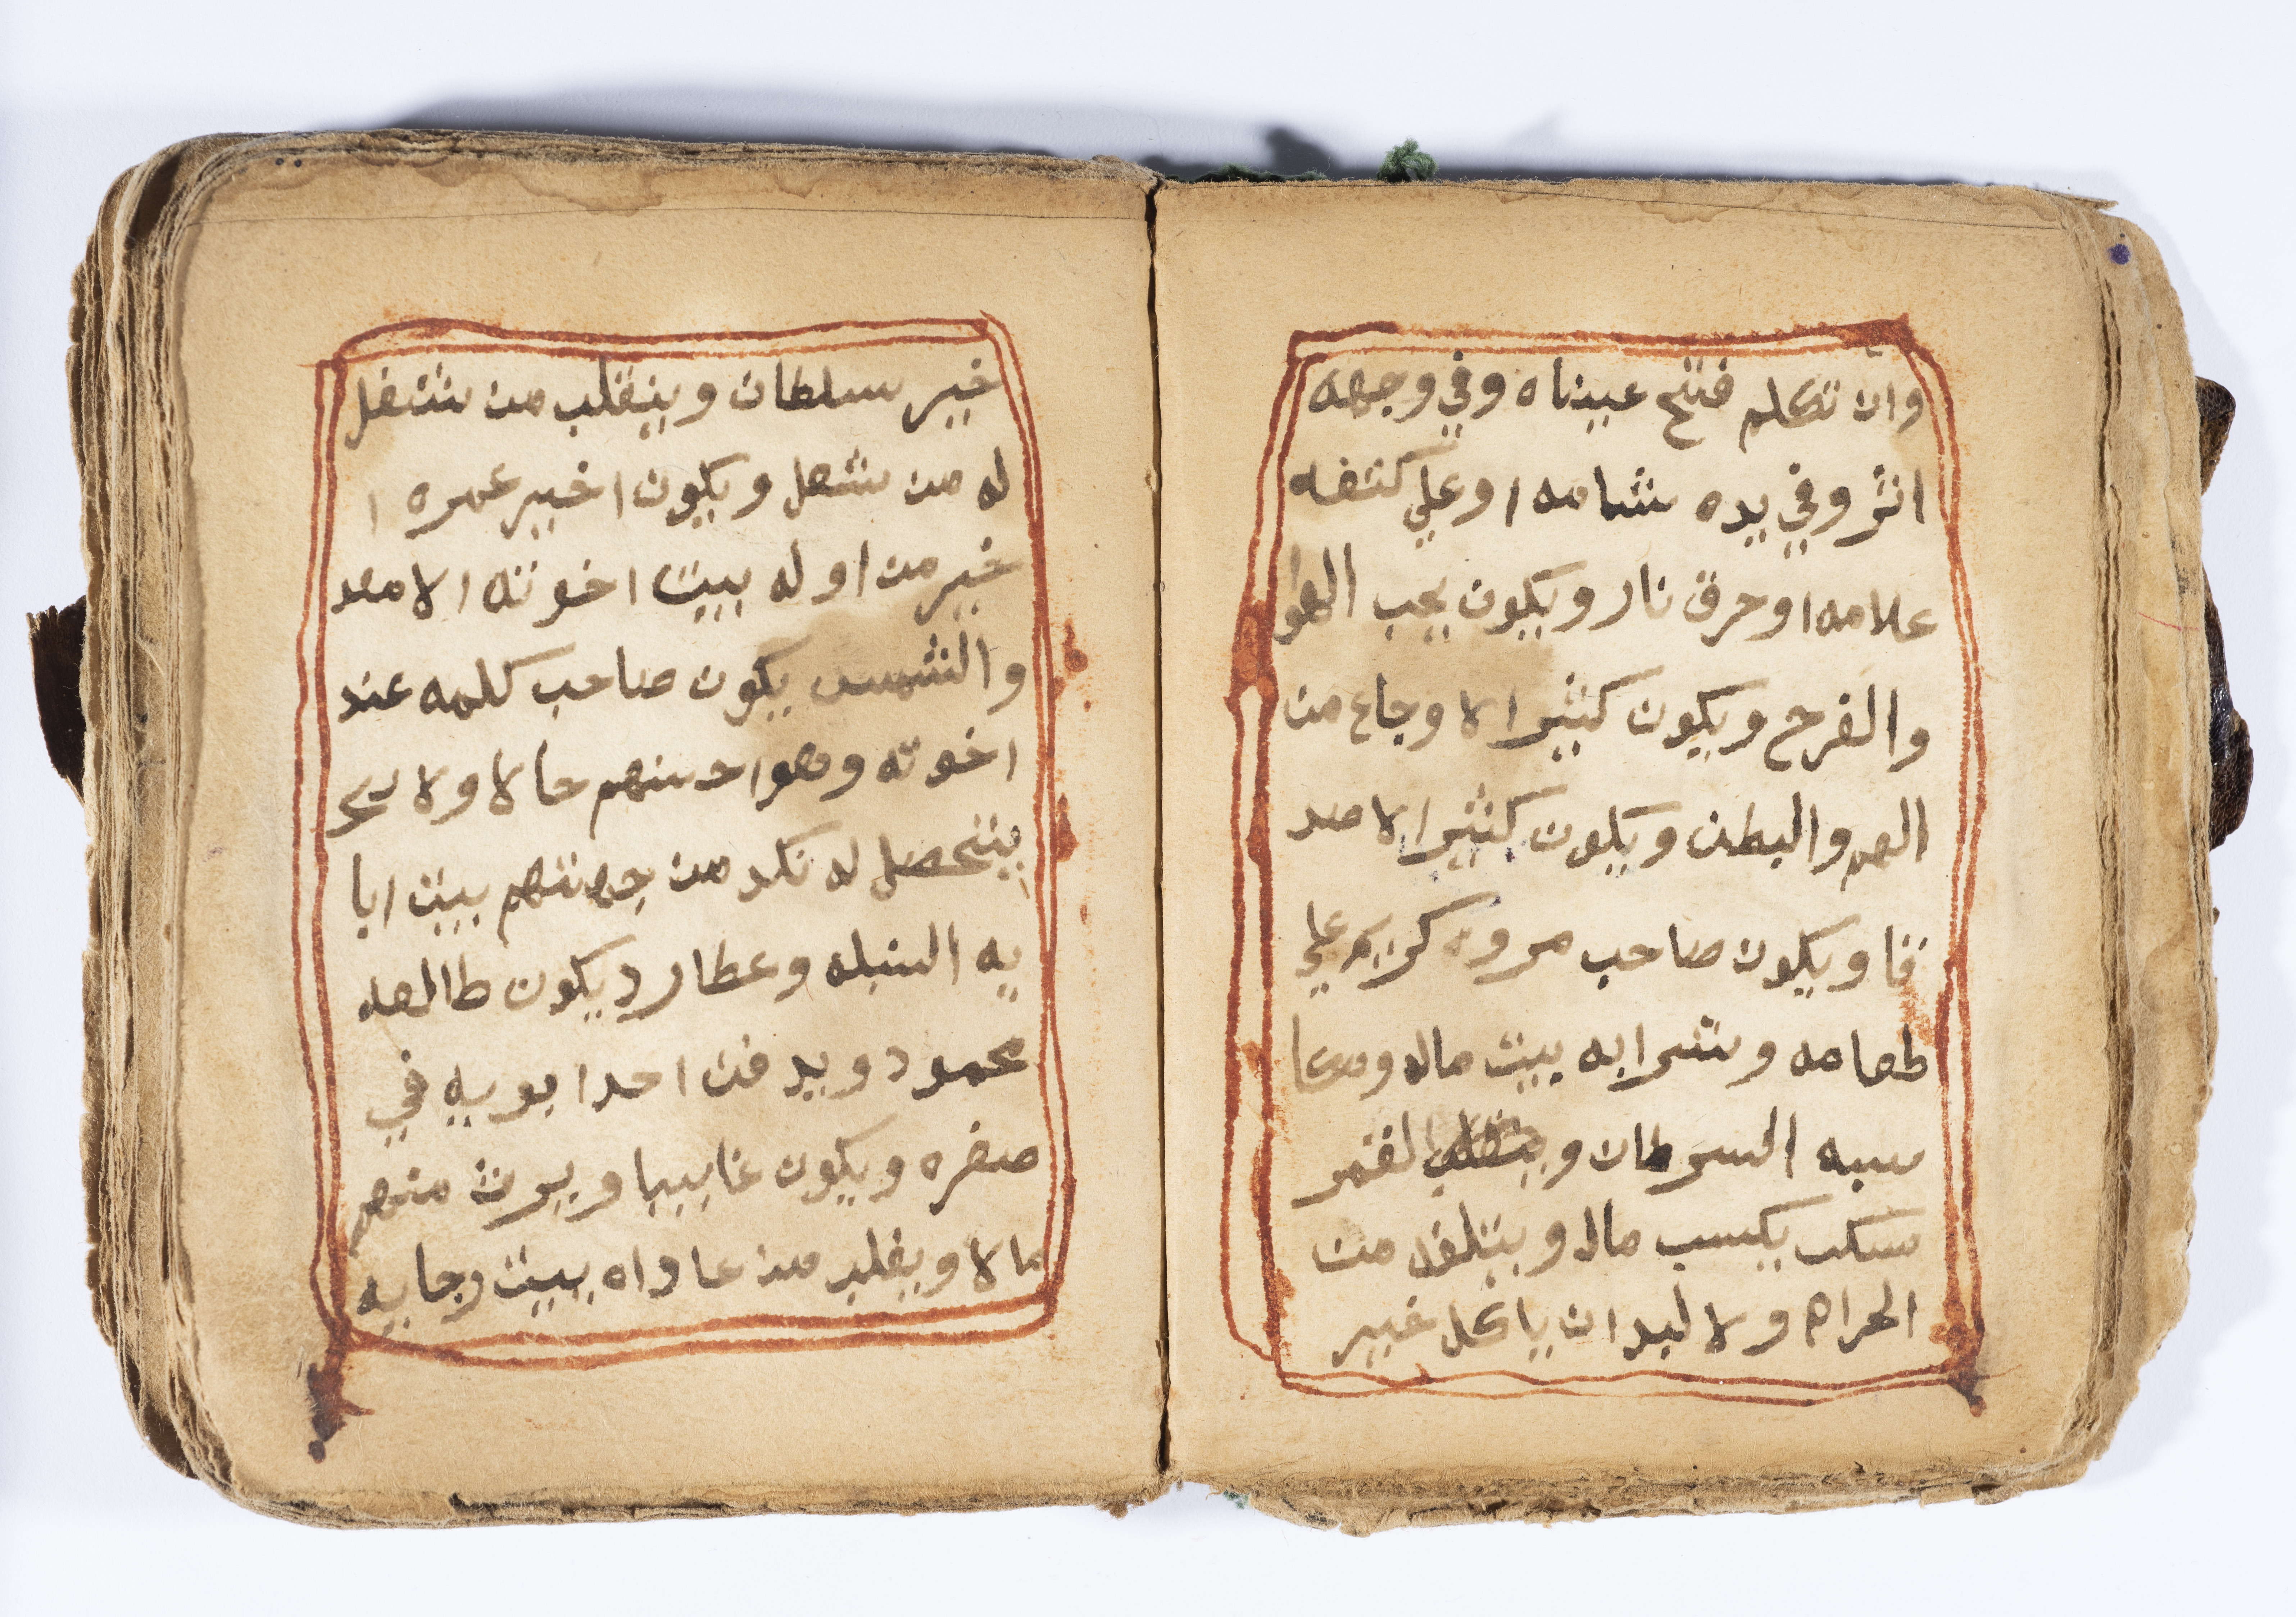 وان تكلم فتح عيناه وفي وجهه
اثر وفي يده شامه اوعلي كتفه
علامه اوحرق نار ويكون يحب اللهو
والفرح ويكون كثير الاوجاع من
الهم والبطن ويكون كثير الاصد
قا ويكون صاحب مروه كريم علي
طعامه وشرابه بيت ماله ومعا
سبه السرطان القمر
يكسب مالا ويتلفه من
الحرام ولا لبد ان ياكل خير
خير سلطان وينقلب من شغل
له من شغل ويكون اخير عمره ا
خير من اوله بيت اخوته الاسد
والشمس يكون صاحب كلمه عند
اخوته وهو احسنهم حالا ولا
يتحصل له نكد من جهتهم بيت ابا
يه السنبله وعطارد يكون طالعه
محمود ويدفن احد ابويه في
صغره ويكون غايبا ويرث منهم
مالا ويغلب من عاداه بيت رجايه